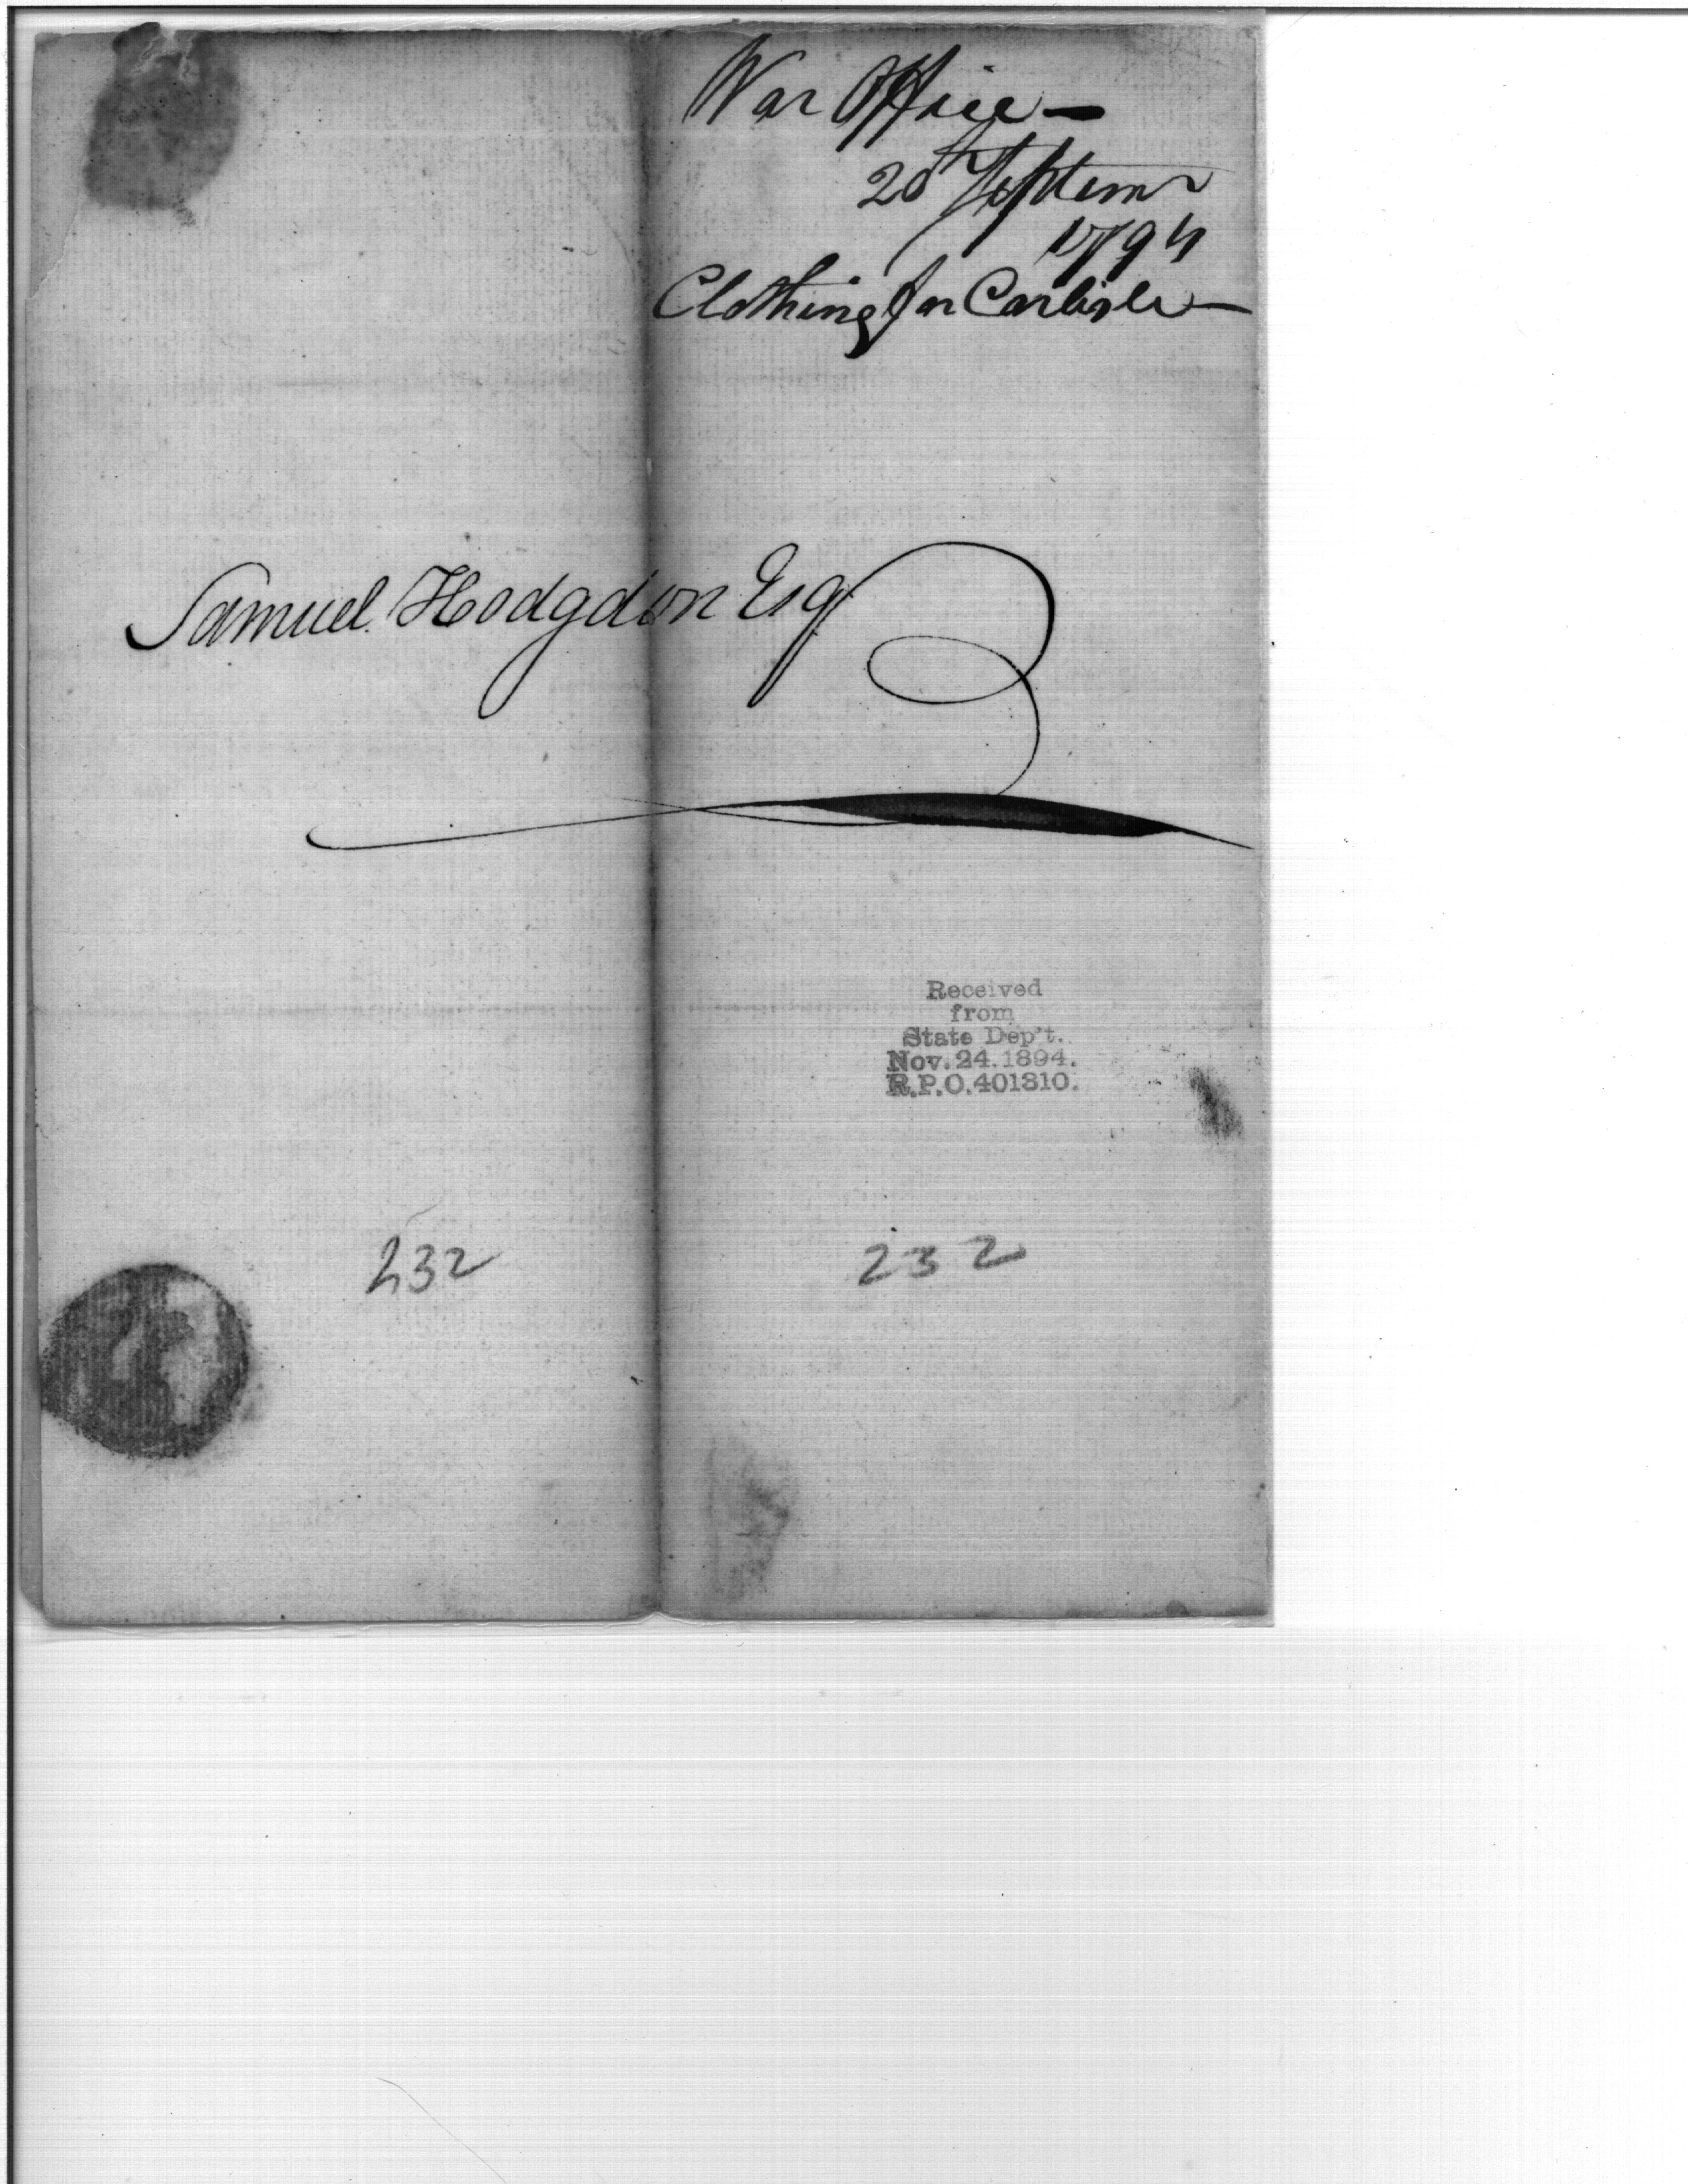 War Office —
20 Septemr
1794
Clothing for Carlisle —
Samuel Hodgdon Esq
Received
from
State Dep't.
Nov. 24. 1894.
R.P.O. 401310.
232
232